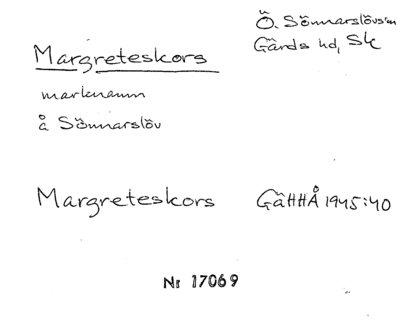 Ö. Sönnarslövs sn
Gärds hd, Sk
Margreteskors
marknamn
å Sönnarslöv
Margreteskors GäHHÅ 1945:40
Nr 17069